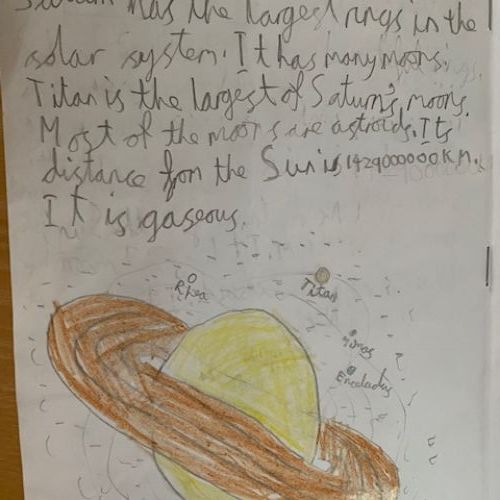 Saturn has the largest rings in the
solar system. It has many moons.
Titan is the largest of Saturn's moons.
Most of the moons are astroids. Its
distance from the Sun is 1429000000 KM.
It is gaseous.
Rhea
Titan
Enceladus